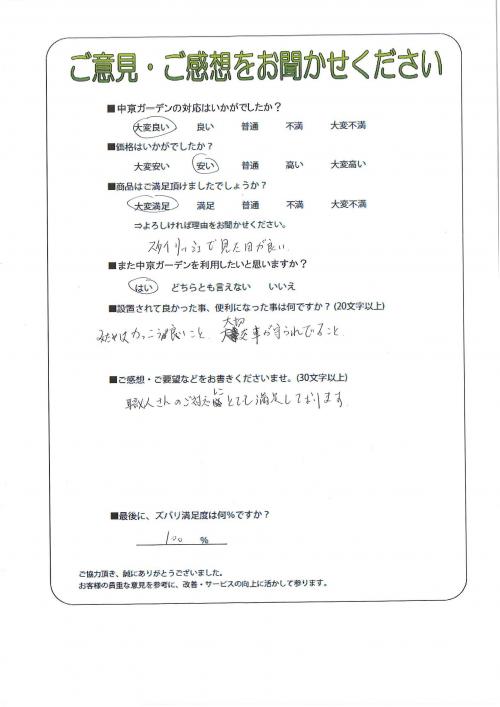 ご意見・ご感想をお聞かせください
■中京ガーデンの対応はいかがでしたか？
大変良い 良い 普通 不満 大変不満
■価格はいかがでしたか？
大変安い 安い 普通 高い 大変高い
■商品はご満足頂けましたでしょうか？
大変満足 満足 普通 不満 大変不満
⇒よろしければ理由をお聞かせください。
スタイリッシュで見た目が良い
■また中京ガーデンを利用したいと思いますか？
はい どちらとも言えない いいえ
■設置されて良かった事、便利になった事は何ですか？(20文字以上)
大切
みためはかっこうが良いこと 車が守られてること
■ご感想・ご要望などをお書きくださいませ。(30文字以上)
職人さんのご対応にとても満足しております
■最後に、ズバリ満足度は何%ですか？
100 %
ご協力頂き、誠にありがとうございました。
お客様の貴重な意見を参考に、改善・サービスの向上に活かして参ります。